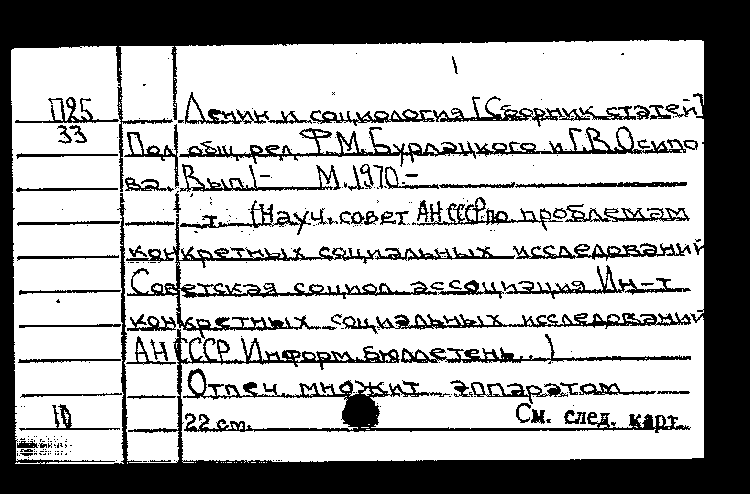 П25 Ленин и социология [Сборник статей]
33 Под общ. ред. Ф.М.Бурлацкого и Г.В.Осипо-
ва. Вып.1- М.1970.-
т. (Науч. совет АН СССР по проблемам
конкретных социальных исследований
Советская социол. ассоциация Ин-т
конкретных социальных исследований
АН СССР. Информ. бюллетень..)
Отпеч. множит. аппаратом
10 22 см. См. след. карт.